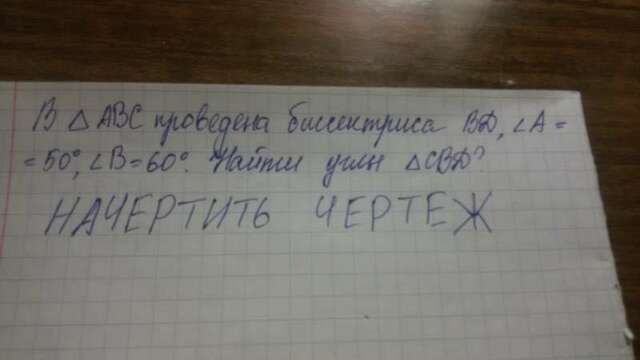 В △ABC проведена биссектриса BD, ∠A =
= 50°, ∠B = 60°. Найти углы △CBD?
НАЧЕРТИТЬ ЧЕРТЕЖ